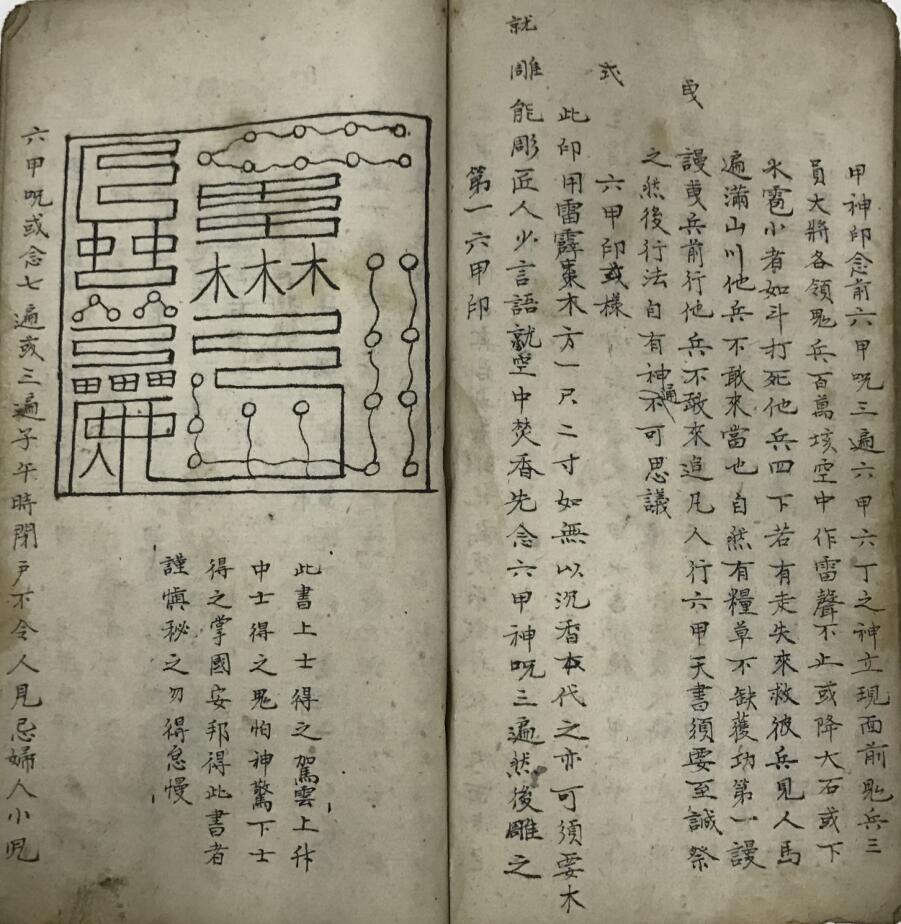 甲神印念前六甲咒三遍六甲六丁之神立現面前鬼兵三
員大將各領鬼兵百萬垓空中作雷聲不止或降大石或下
氷雹小者如斗打死他兵四下若有走失來救彼兵見人馬
遍滿山川他兵不敢來當也自然有糧草不缺獲功第一謾
謾曳兵前行他兵不敢來追凡人行六甲天書須要至誠祭
曳
之然後行法自有神通不可思議
六甲印或樣
式
此印用雷霹棗木方一尺二寸如無以沉香本代之亦可須要木
就雕能彫匠人少言語就空中焚香先念六甲神咒三遍然後雕之
第一六甲印
此書上士得之駕雲上升
中士得之鬼怕神驚下士
得之掌國安邦得此書者
謹慎秘之勿得怠慢
六甲咒或念七遍或三遍子午時閉戶不令人見忌婦人小児